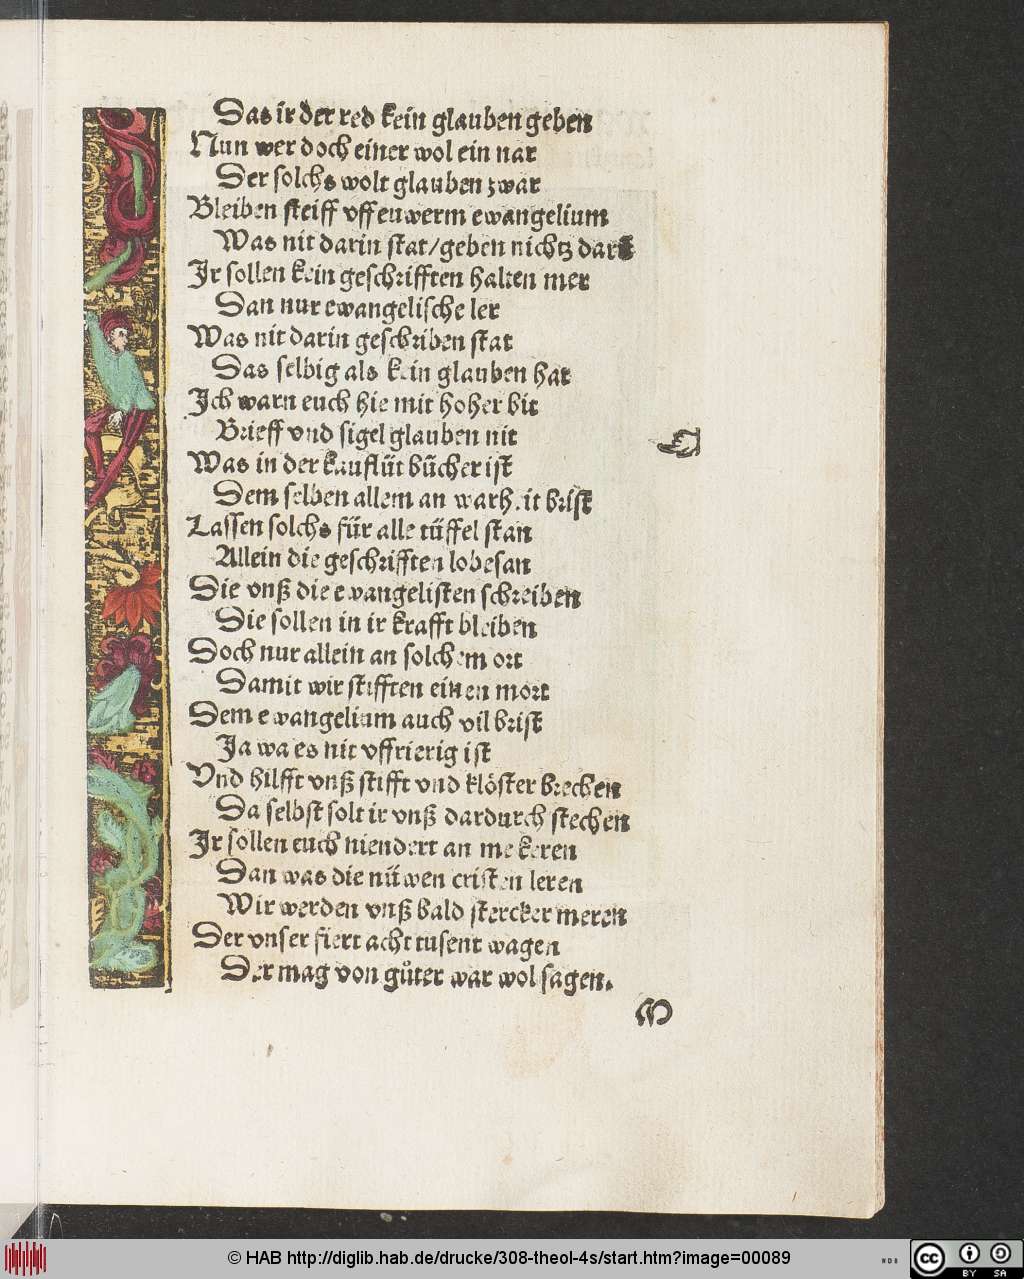 Das ir der red kein glauben geben
Nun wer doch einer wol ein nar
Der solchs wolt glauben zwar
Bleiben steiff vff euwerm ewangelium
Was nit darin stat/geben nichtz darū
Ir sollen kein geschrifften halten mer
Dan nur ewangelische ler
Was nit darin geschriben stat
Das selbig als kein glauben hat
Ich warn euch hie mit hoher bit
Brieff vnd sigel glauben nit
Was in der kauflüt bücher ist
Dem selben allem an warheit brist
Lassen solchs für alle tüffel stan
Allein die geschrifften lobesan
Die vnß die ewangelisten schreiben
Die sollen in ir krafft bleiben
Doch nur allein an solchem ort
Damit wir stifften einen mort
Dem ewangelium auch vil brist
Ja wa es nit vffrierig ist
Vnd hilfft vnß stifft vnd klöster brechen
Da selbst solt ir vnß dardurch stechen
Ir sollen euch niendert an me keren
Dan was die nüwen cristen leren
Wir werden vnß bald stercker meren
Der vnser fiert acht tusent wagen
Der mag von gůter war wol sagen.
M
© HAB http://diglib.hab.de/drucke/308-theol-4s/start.htm?image=00089
WDB
cc BY SA